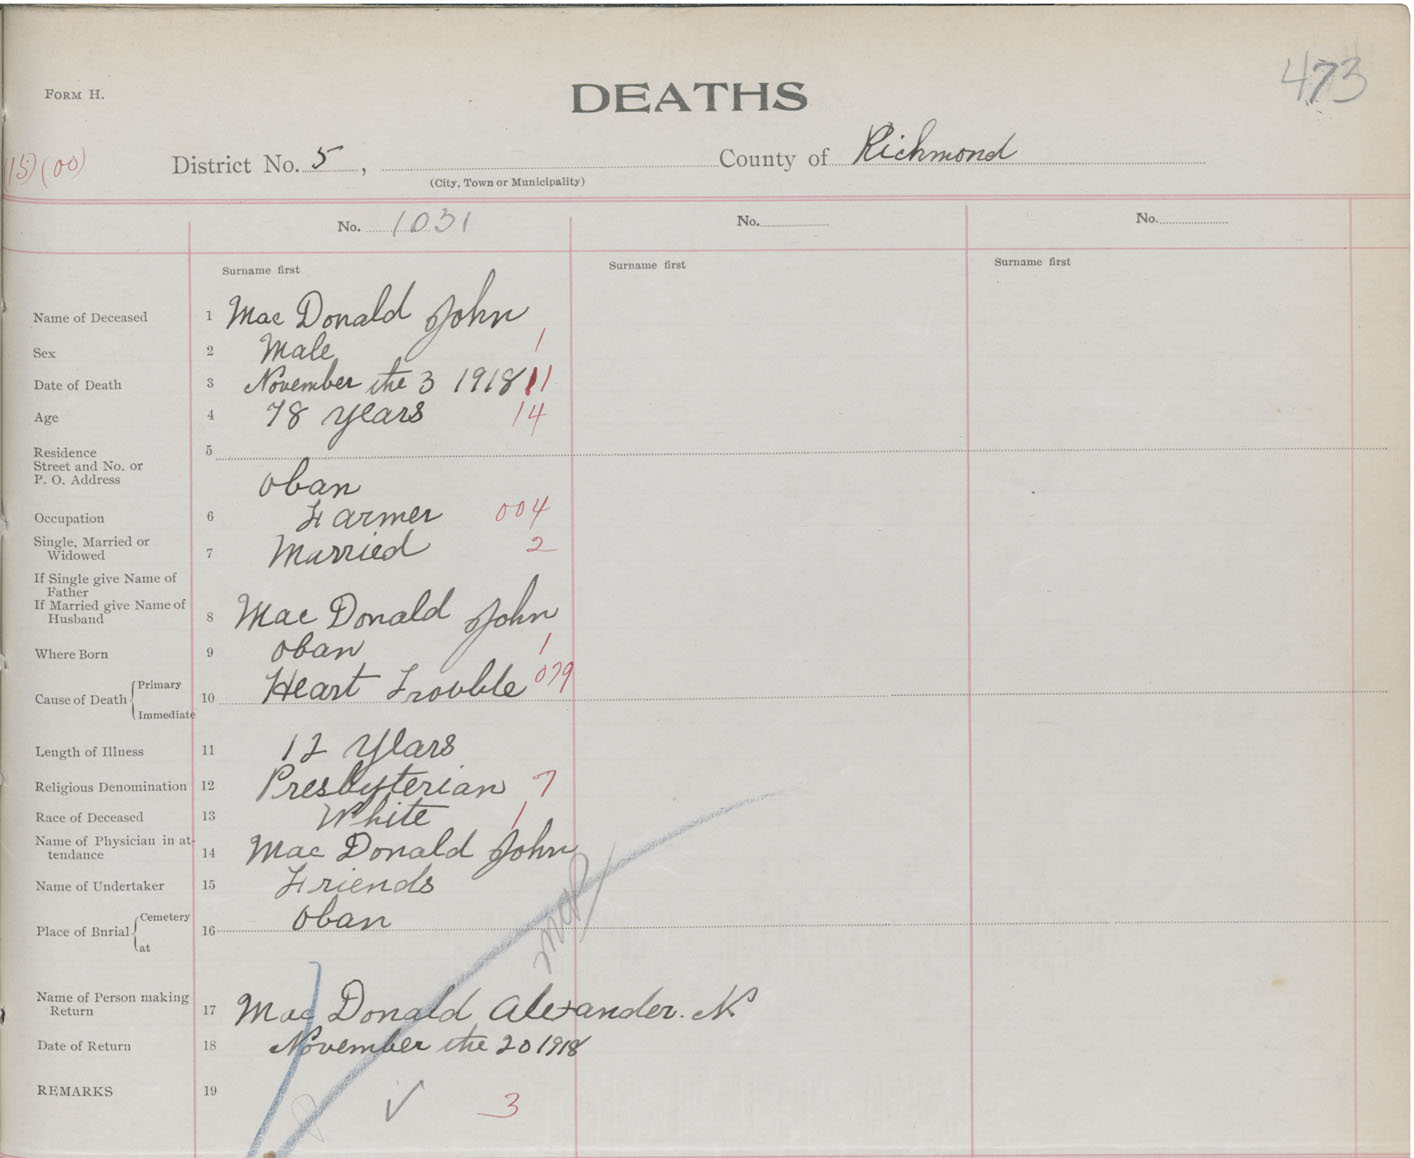 473
FORM H.
DEATHS
(15) (00)
District No. 5, County of Richmond
(City, Town or Municipality)
No. 1031 No. No.
Surname first Surname first Surname first
Name of Deceased 1 Mac Donald John
Sex 2 Male 1
Date of Death 3 November the 3 1918 11
Age 4 78 years 14
Residence 5
Street and No. or
P. O. Address Oban
Occupation 6 Farmer 004
Single, Married or
Widowed 7 Married 2
If Single give Name of
Father
If Married give Name of
Husband 8 Mac Donald John
Where Born 9 Oban 1
Cause of Death Primary Heart Trouble 079
10
Immediate
Length of Illness 11 12 years
Religious Denomination 12 Presbyterian 7
Race of Deceased 13 White 1
Name of Physician in at-
tendance 14 Mac Donald John
Name of Undertaker 15 Friends
Place of Burial Cemetery Oban
16
at
Name of Person making
Return 17 Mac Donald Alexander. N
Date of Return 18 November the 20 1918
REMARKS 19
3